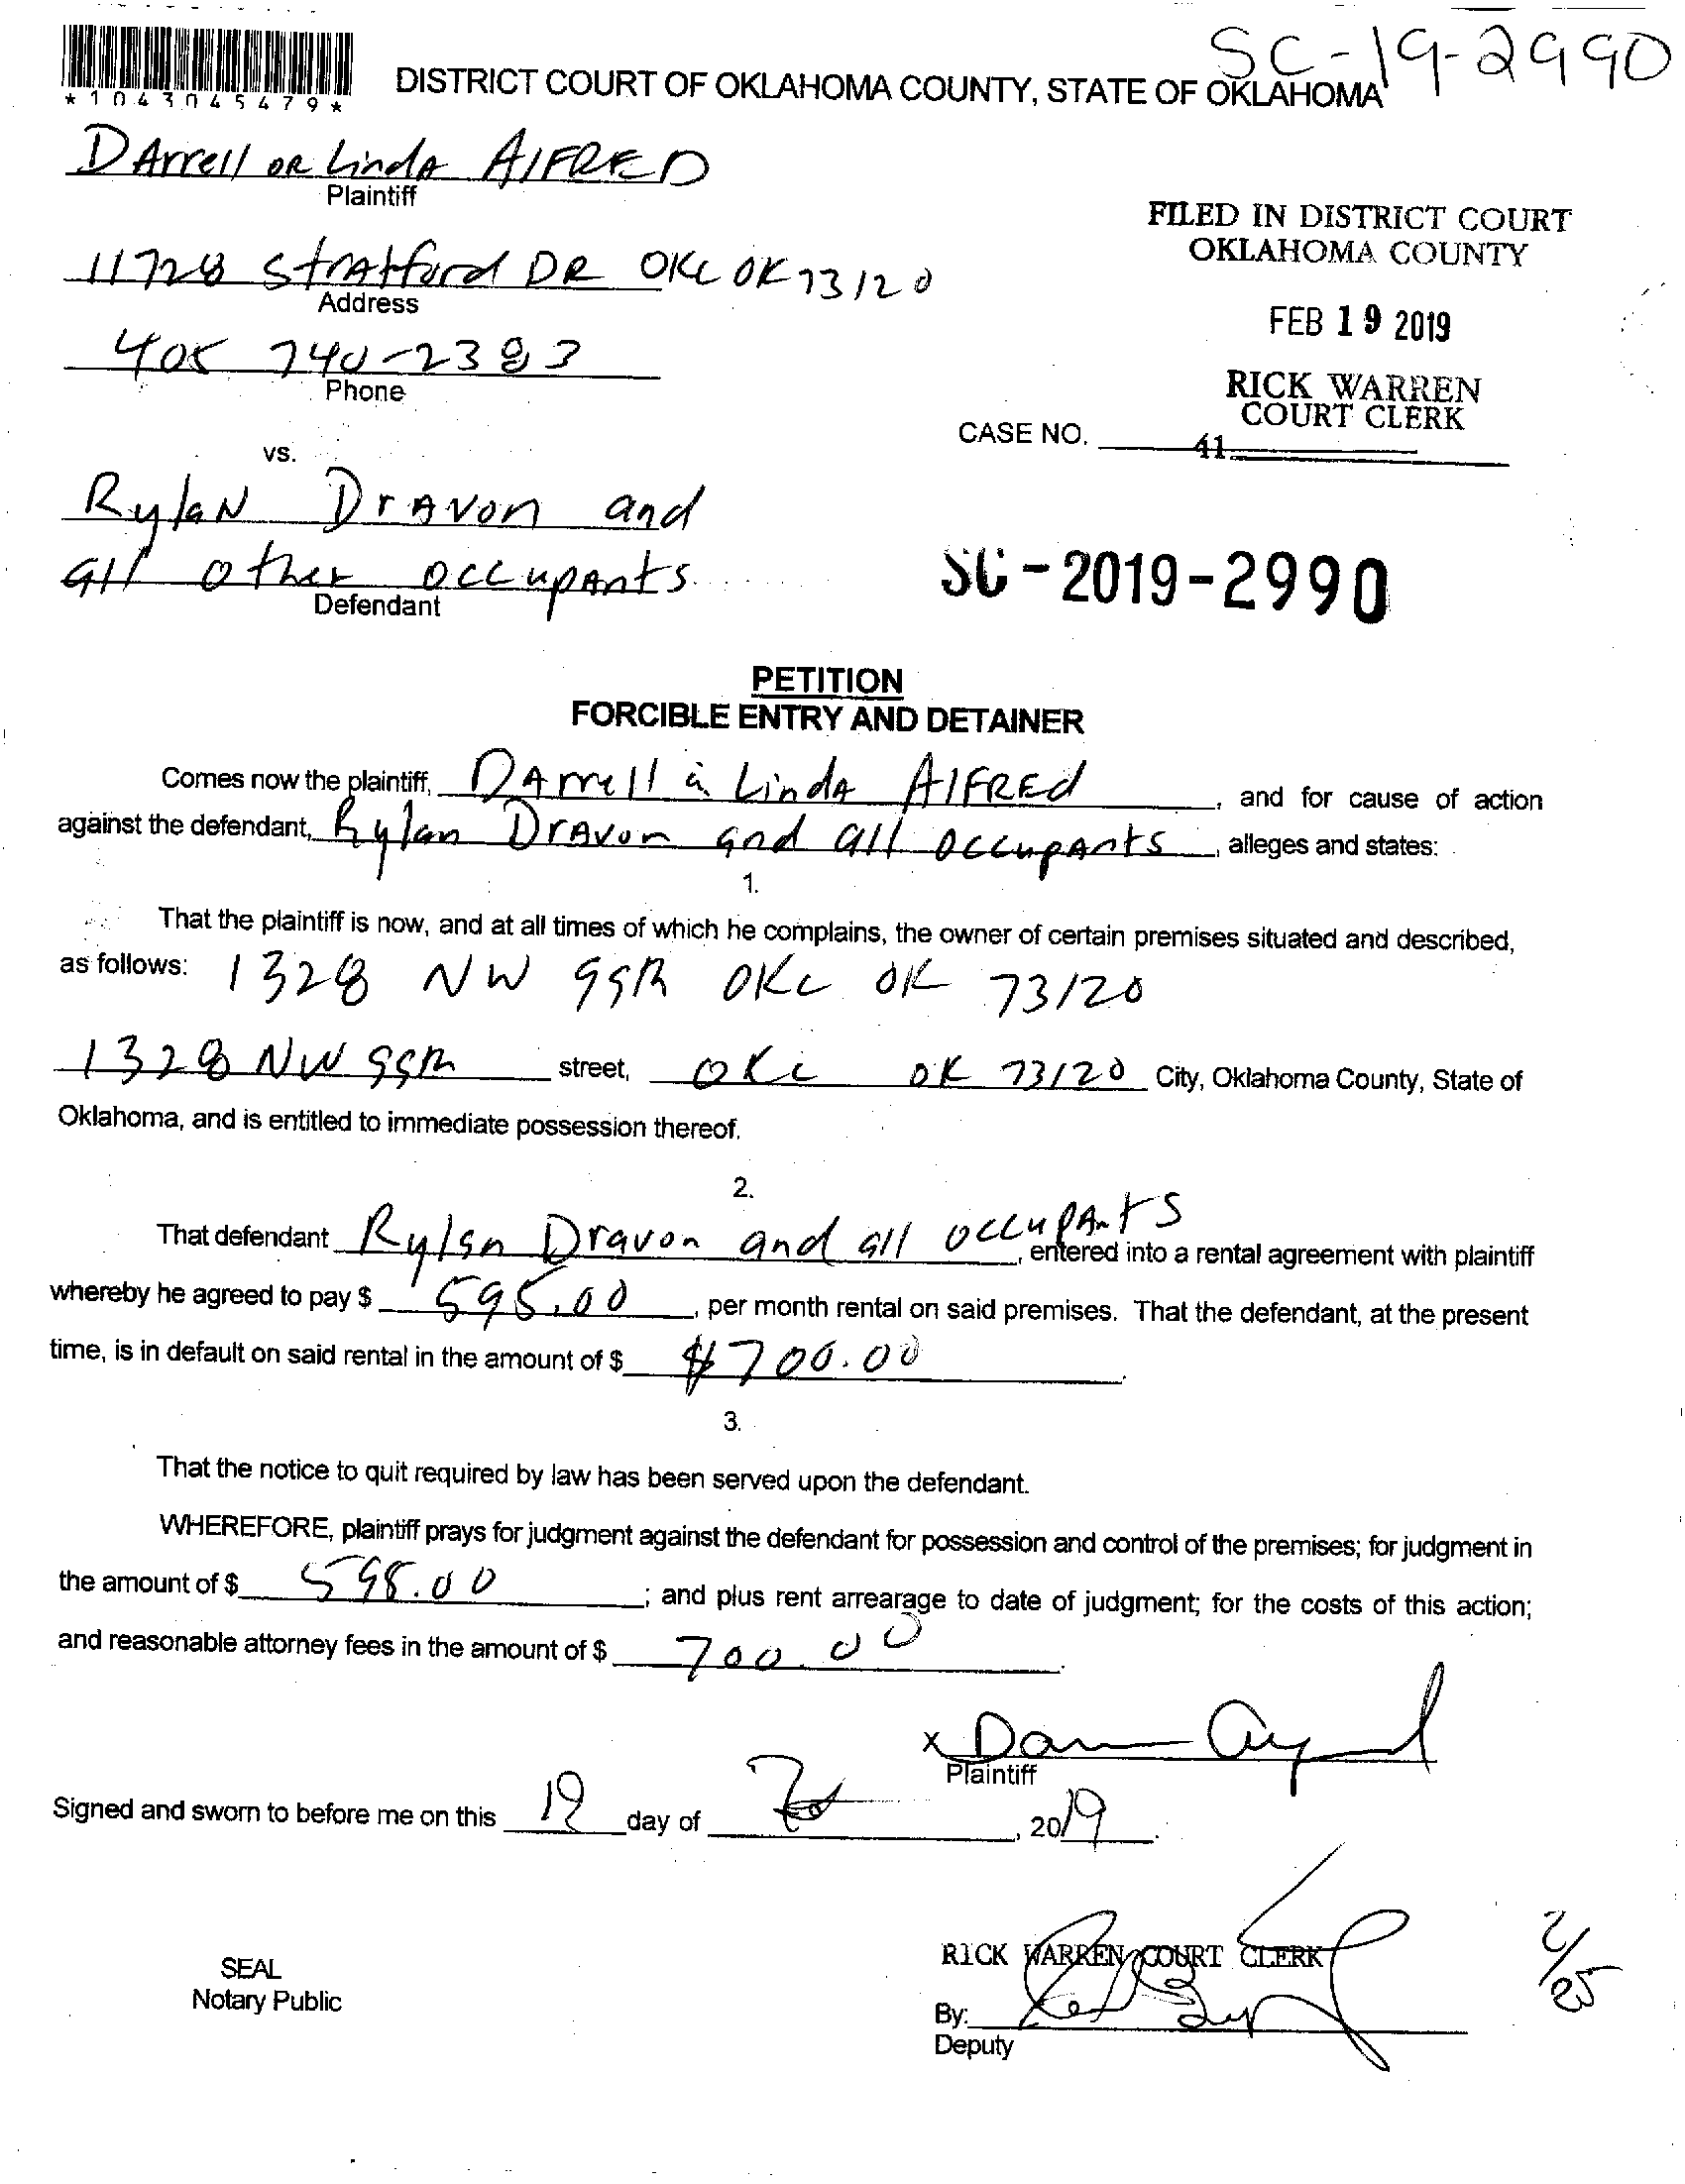 SC-19-2990
*1043045479*
DISTRICT COURT OF OKLAHOMA COUNTY, STATE OF OKLAHOMA
DArrell OR LindA AlFRED
Plaintiff
11728 StrAtford DR OKC OK 73120
Address
405 740-2383
Phone
FILED IN DISTRICT COURT
OKLAHOMA COUNTY
FEB 19 2019
RICK WARREN
COURT CLERK
CASE NO.
41
vs.
RylaN DrAvon and
all other occupAnts
Defendant
SC-2019-2990
PETITION
FORCIBLE ENTRY AND DETAINER
Comes now the plaintiff, DArrell & LindA AlFREd, and for cause of action
against the defendant, Rylan DrAvon and all OccupAnts, alleges and states:
1.
That the plaintiff is now, and at all times of which he complains, the owner of certain premises situated and described,
as follows: 1328 NW 99th OKC OK 73120
1328 NW 99th street, OKC OK 73120 City, Oklahoma County, State of
Oklahoma, and is entitled to immediate possession thereof.
2.
That defendant Rylan Dravon and all occupAnts, entered into a rental agreement with plaintiff
whereby he agreed to pay $ 595.00, per month rental on said premises. That the defendant, at the present
time, is in default on said rental in the amount of $ $700.00
3.
That the notice to quit required by law has been served upon the defendant.
WHEREFORE, plaintiff prays for judgment against the defendant for possession and control of the premises; for judgment in
the amount of $ 595.00; and plus rent arrearage to date of judgment; for the costs of this action;
and reasonable attorney fees in the amount of $ 700.00
x
Plaintiff
Signed and sworn to before me on this 19 day of Feb, 2019.
SEAL
Notary Public
RICK WARREN COURT CLERK
By:
Deputy
2/25